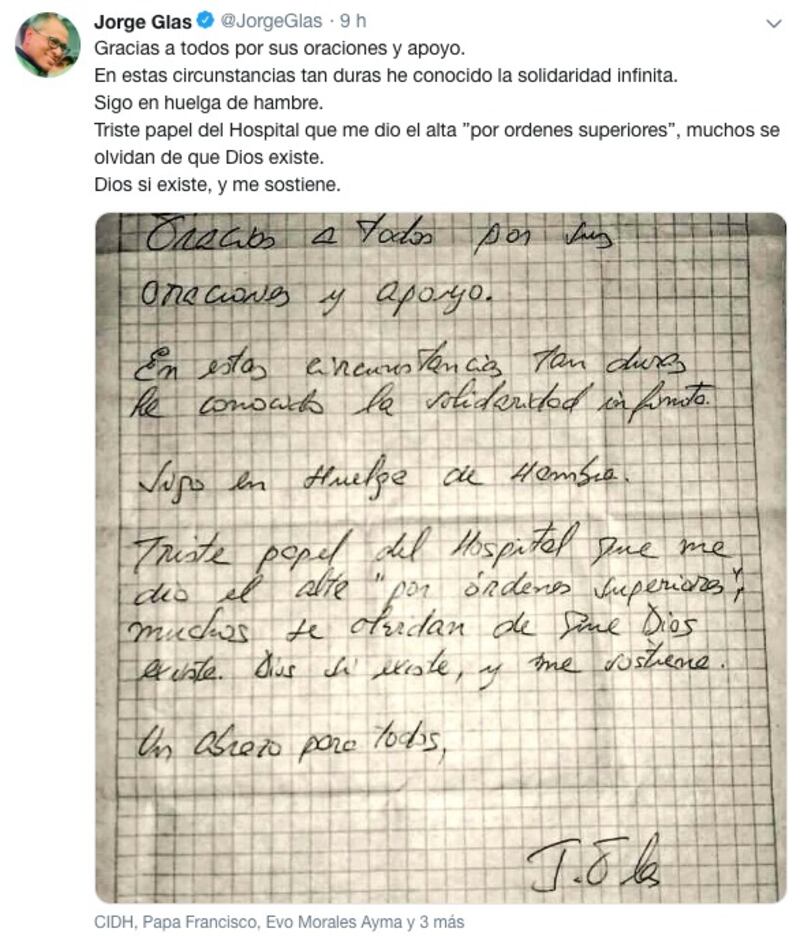 Jorge Glas @JorgeGlas · 9 h
Gracias a todos por sus oraciones y apoyo.
En estas circunstancias tan duras he conocido la solidaridad infinita.
Sigo en huelga de hambre.
Triste papel del Hospital que me dio el alta "por ordenes superiores", muchos se
olvidan de que Dios existe.
Dios si existe, y me sostiene.
Gracias a todos por sus
oraciones y apoyo.
En estas circunstancias tan duras
he conocido la solidaridad infinita.
Sigo en Huelga de Hambre.
Triste papel del Hospital que me
dio el alta "por órdenes superiores",
muchos se olvidan de que Dios
existe. Dios si existe, y me sostiene.
Un abrazo para todos,
J. Glas
CIDH, Papa Francisco, Evo Morales Ayma y 3 más